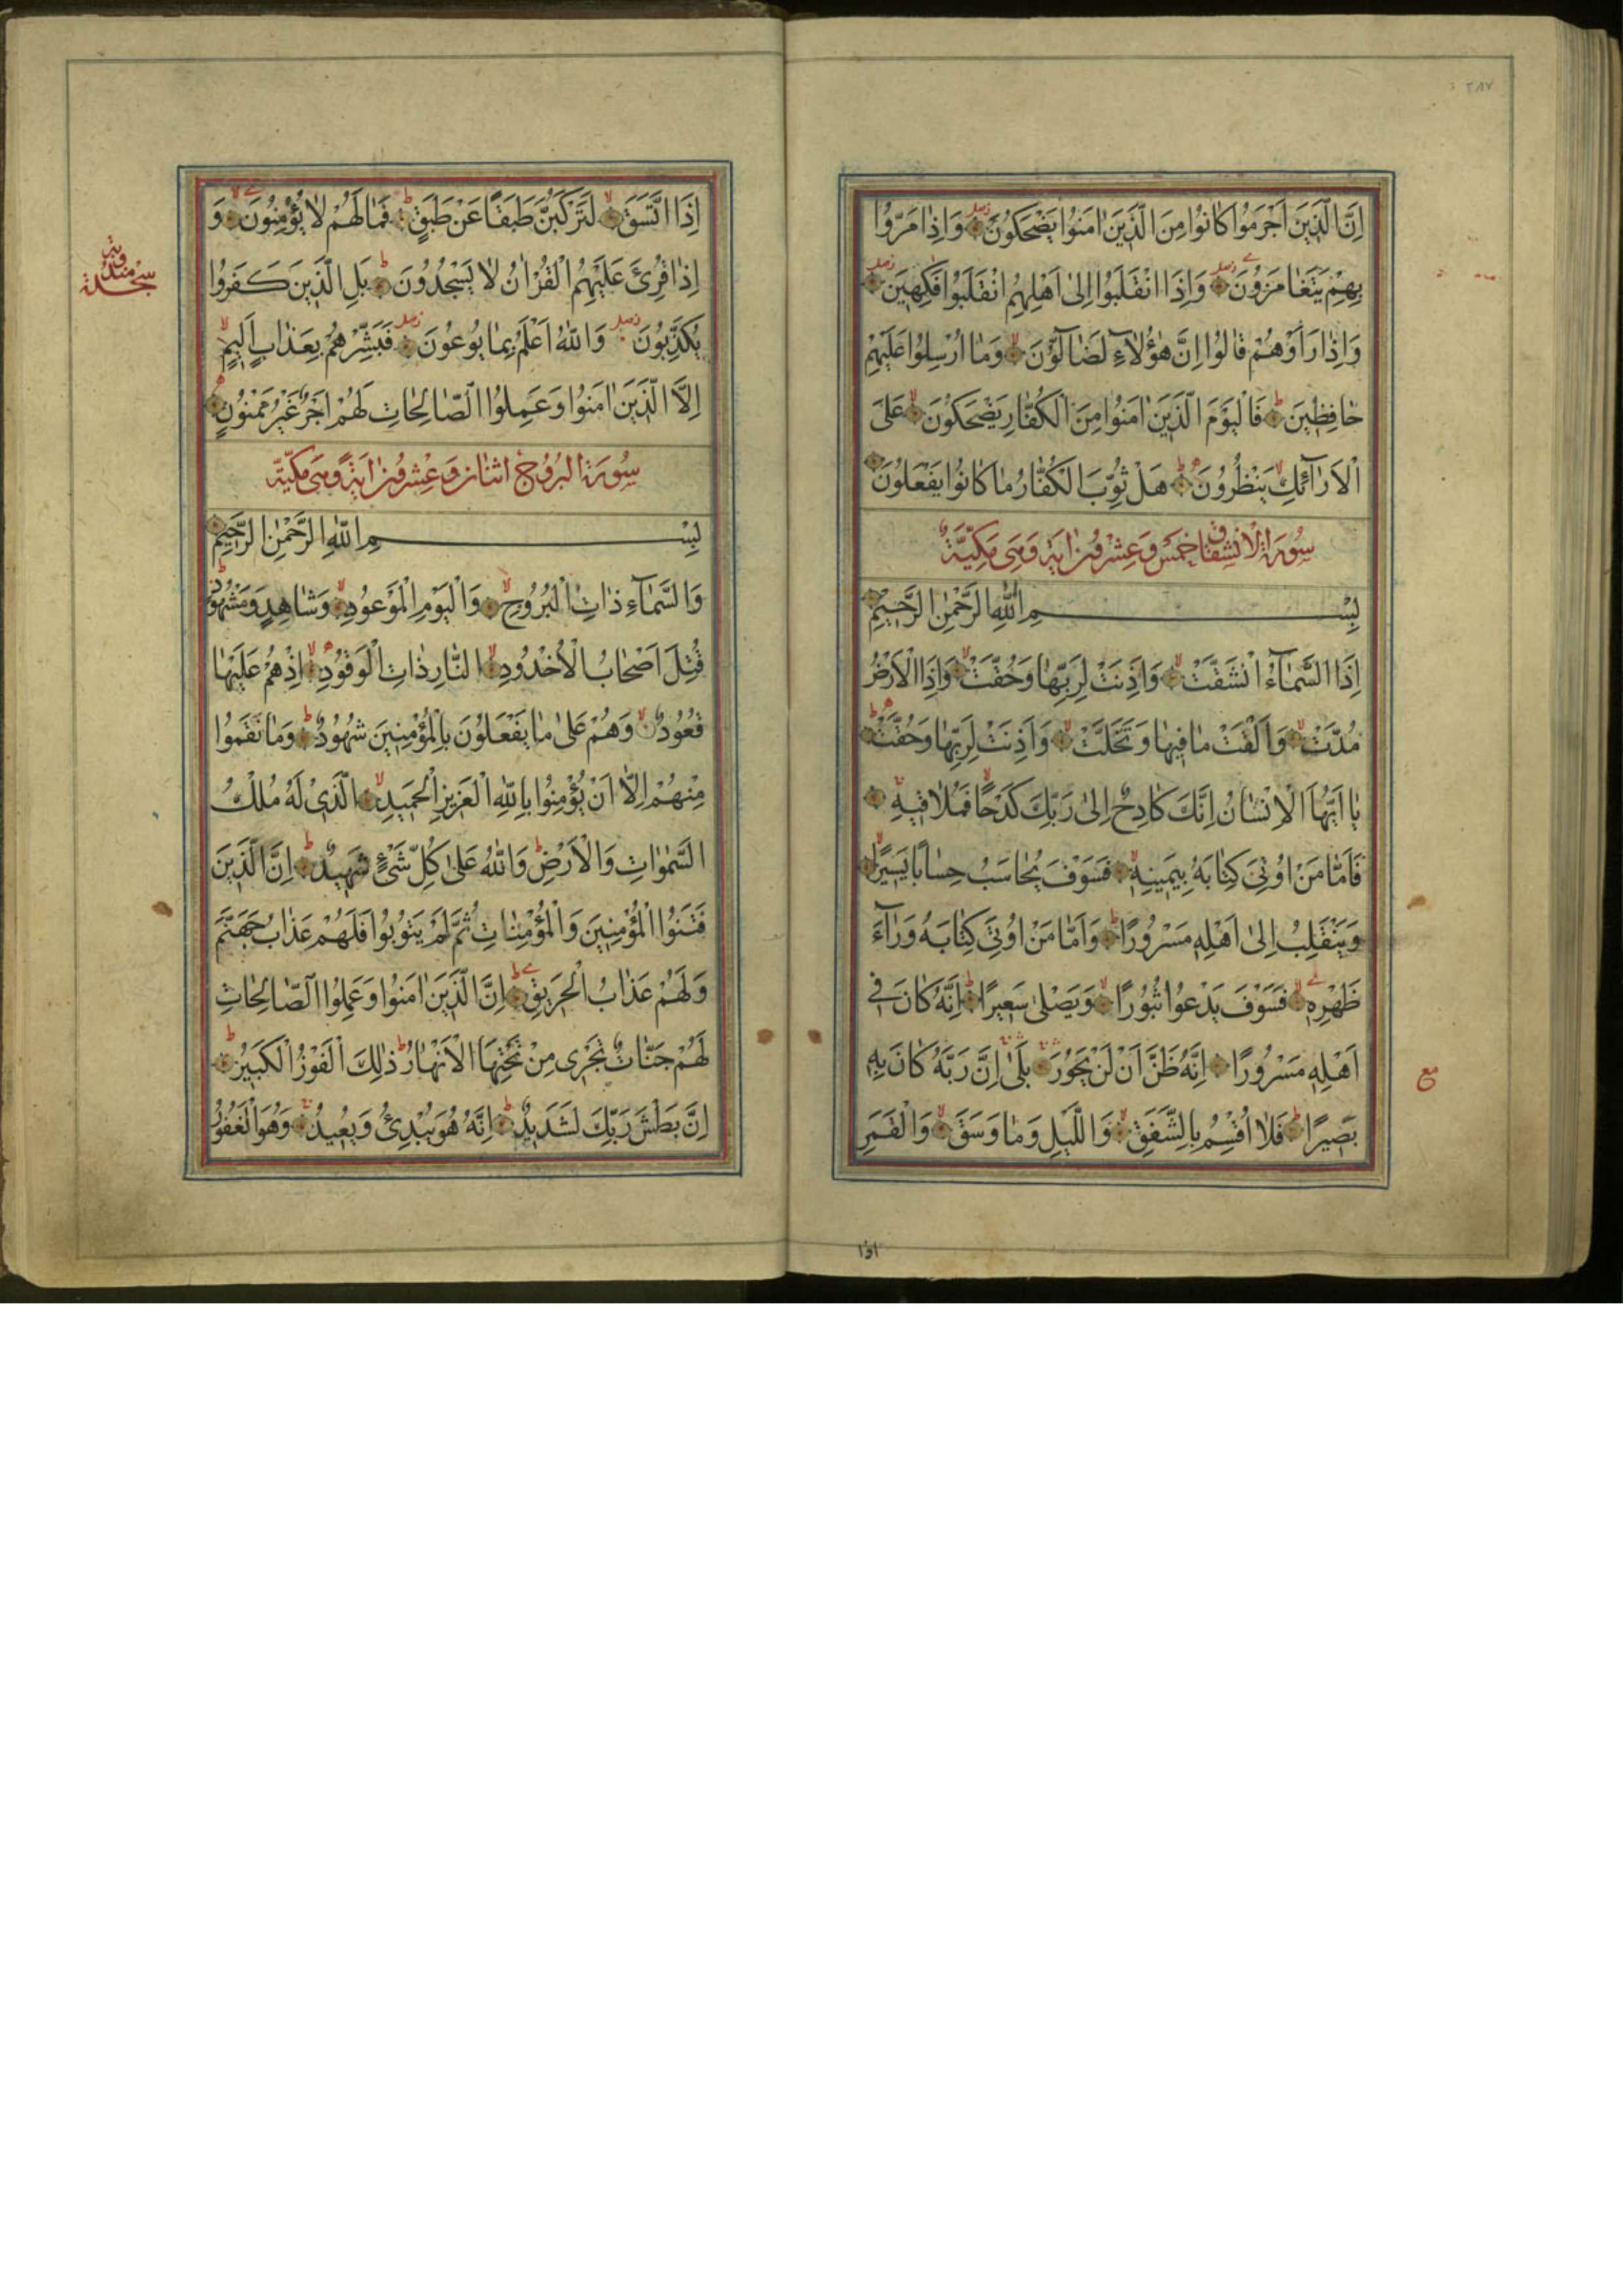 ٢٨٧
اِنَّ الَّذٖينَ اَجْرَمُوا كَانُوا مِنَ الَّذٖينَ اٰمَنُوا يَضْحَكُونَ وَاِذَا مَرُّوا
بِهِمْ يَتَغَامَزُونَ وَاِذَا انْقَلَبُوا اِلٰى اَهْلِهِمُ انْقَلَبُوا فَكِهٖينَ
وَاِذَا رَاَوْهُمْ قَالُوا اِنَّ هٰٓؤُلَآءِ لَضَآلُّونَ وَمَا اُرْسِلُوا عَلَيْهِمْ
حَافِظٖينَ فَالْيَوْمَ الَّذٖينَ اٰمَنُوا مِنَ الْكُفَّارِ يَضْحَكُونَ عَلَى
الْاَرَآئِكِ يَنْظُرُونَ هَلْ ثُوِّبَ الْكُفَّارُ مَا كَانُوا يَفْعَلُونَ
سُورَةُ الْاِنْشِقَاقِ خَمْسٌ وَعِشْرُونَ اٰيَةً وَهِىَ مَكِّيَّةٌ
بِسْمِ اللّٰهِ الرَّحْمٰنِ الرَّحٖيمِ
اِذَا السَّمَآءُ انْشَقَّتْ وَاَذِنَتْ لِرَبِّهَا وَحُقَّتْ وَاِذَا الْاَرْضُ
مُدَّتْ وَاَلْقَتْ مَا فٖيهَا وَتَخَلَّتْ وَاَذِنَتْ لِرَبِّهَا وَحُقَّتْ
يَا اَيُّهَا الْاِنْسَانُ اِنَّكَ كَادِحٌ اِلٰى رَبِّكَ كَدْحًا فَمُلَاقٖيهِ
فَاَمَّا مَنْ اُوتِىَ كِتَابَهُ بِيَمٖينِهٖ فَسَوْفَ يُحَاسَبُ حِسَابًا يَسٖيرًا
وَيَنْقَلِبُ اِلٰى اَهْلِهٖ مَسْرُورًا وَاَمَّا مَنْ اُوتِىَ كِتَابَهُ وَرَآءَ
ظَهْرِهٖ فَسَوْفَ يَدْعُوا ثُبُورًا وَيَصْلٰى سَعٖيرًا اِنَّهُ كَانَ فٖى
اَهْلِهٖ مَسْرُورًا اِنَّهُ ظَنَّ اَنْ لَنْ يَحُورَ بَلٰى اِنَّ رَبَّهُ كَانَ بِهٖ
مع
بَصٖيرًا فَلَا اُقْسِمُ بِالشَّفَقِ وَالَّيْلِ وَمَا وَسَقَ وَالْقَمَرِ
اذا
اِذَا اتَّسَقَ لَتَرْكَبُنَّ طَبَقًا عَنْ طَبَقٍ فَمَا لَهُمْ لَا يُؤْمِنُونَ وَ
اِذَا قُرِئَ عَلَيْهِمُ الْقُرْاٰنُ لَا يَسْجُدُونَ بَلِ الَّذٖينَ كَفَرُوا
سجدة
يُكَذِّبُونَ وَاللّٰهُ اَعْلَمُ بِمَا يُوعُونَ فَبَشِّرْهُمْ بِعَذَابٍ اَلٖيمٍ
اِلَّا الَّذٖينَ اٰمَنُوا وَعَمِلُوا الصَّالِحَاتِ لَهُمْ اَجْرٌ غَيْرُ مَمْنُونٍ
سُورَةُ الْبُرُوجِ اثْنَانِ وَعِشْرُونَ اٰيَةً وَهِىَ مَكِّيَّةٌ
بِسْمِ اللّٰهِ الرَّحْمٰنِ الرَّحٖيمِ
وَالسَّمَآءِ ذَاتِ الْبُرُوجِ وَالْيَوْمِ الْمَوْعُودِ وَشَاهِدٍ وَمَشْهُودٍ
قُتِلَ اَصْحَابُ الْاُخْدُودِ النَّارِ ذَاتِ الْوَقُودِ اِذْ هُمْ عَلَيْهَا
قُعُودٌ وَهُمْ عَلٰى مَا يَفْعَلُونَ بِالْمُؤْمِنٖينَ شُهُودٌ وَمَا نَقَمُوا
مِنْهُمْ اِلَّا اَنْ يُؤْمِنُوا بِاللّٰهِ الْعَزٖيزِ الْحَمٖيدِ الَّذٖى لَهُ مُلْكُ
السَّمٰوَاتِ وَالْاَرْضِ وَاللّٰهُ عَلٰى كُلِّ شَىْءٍ شَهٖيدٌ اِنَّ الَّذٖينَ
فَتَنُوا الْمُؤْمِنٖينَ وَالْمُؤْمِنَاتِ ثُمَّ لَمْ يَتُوبُوا فَلَهُمْ عَذَابُ جَهَنَّمَ
وَلَهُمْ عَذَابُ الْحَرٖيقِ اِنَّ الَّذٖينَ اٰمَنُوا وَعَمِلُوا الصَّالِحَاتِ
لَهُمْ جَنَّاتٌ تَجْرٖى مِنْ تَحْتِهَا الْاَنْهَارُ ذٰلِكَ الْفَوْزُ الْكَبٖيرُ
اِنَّ بَطْشَ رَبِّكَ لَشَدٖيدٌ اِنَّهُ هُوَ يُبْدِئُ وَيُعٖيدُ وَهُوَ الْغَفُورُ